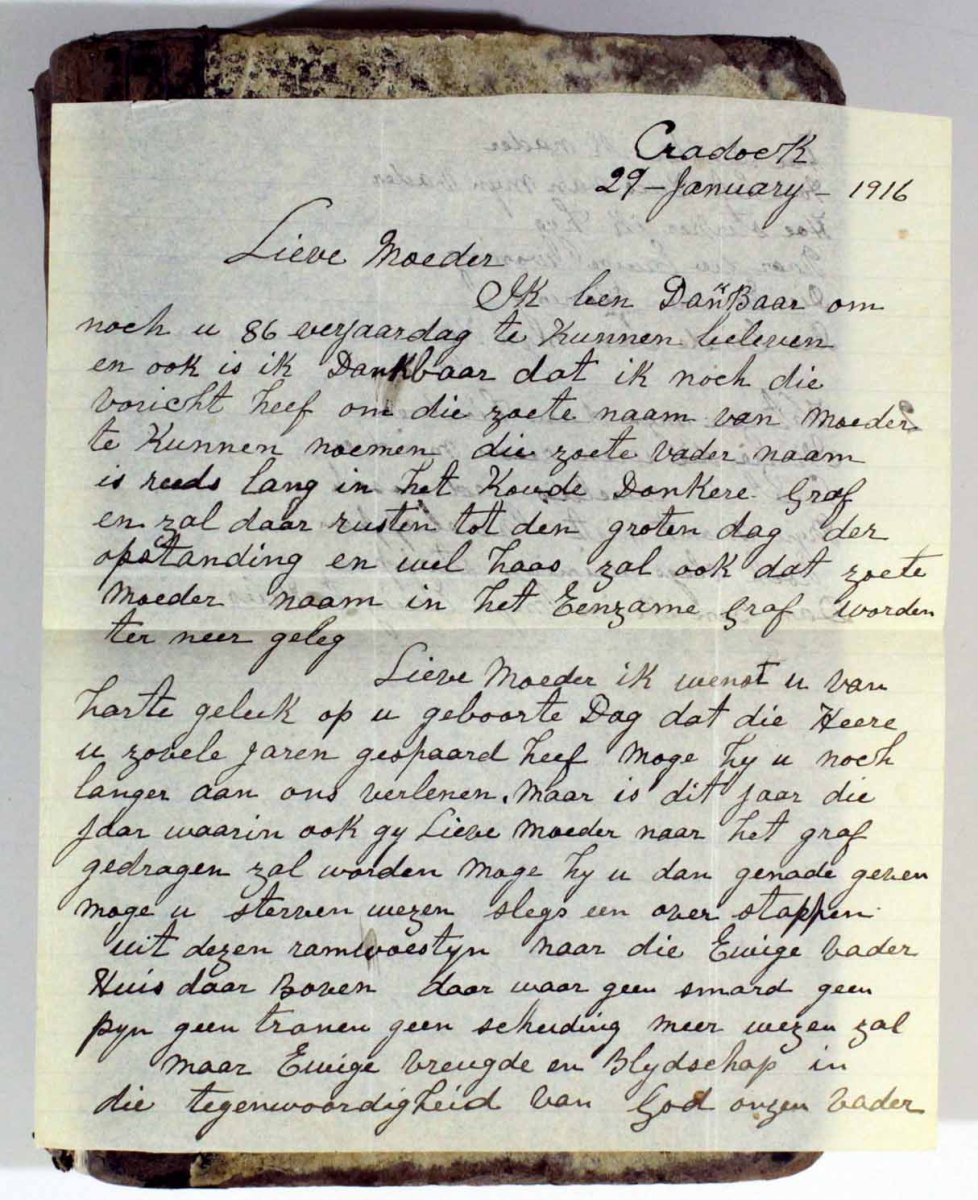 Cradock
29 - January - 1916
Lieve Moeder
Ik ben DankBaar om
noch u 86 verjaardag te Kunnen beleven
en ook is ik Dankbaar dat ik noch die
voricht heef om die zoete naam van Moeder
te Kunnen noemen die zoete vader naam
is reeds lang in het Koude Donkere Graf
en zal daar rusten tot den groten dag der
opstanding en wel haas zal ook dat zoete
Moeder naam in het Eenzame Graf worden
ter neer geleg
Lieve Moeder ik wenst u van
harte geluk op u geboorte Dag dat die Heere
u zovele jaren gespaard heef Moge hy u noch
langer aan ons verlenen. Maar is dit jaar die
jaar waarin ook gy Lieve Moeder naar het graf
gedragen zal worden Moge hy u dan genade geven
Moge u sterven wezen slegs een over stappen
uit dezen ramwoestyn naar die Ewige vader
Huis daar Boven daar waar geen smard geen
pyn geen tranen geen scheiding meer wezen zal
Maar Ewige vreugde en Blydschap in
die tegenwoordigheid van God onzen vader